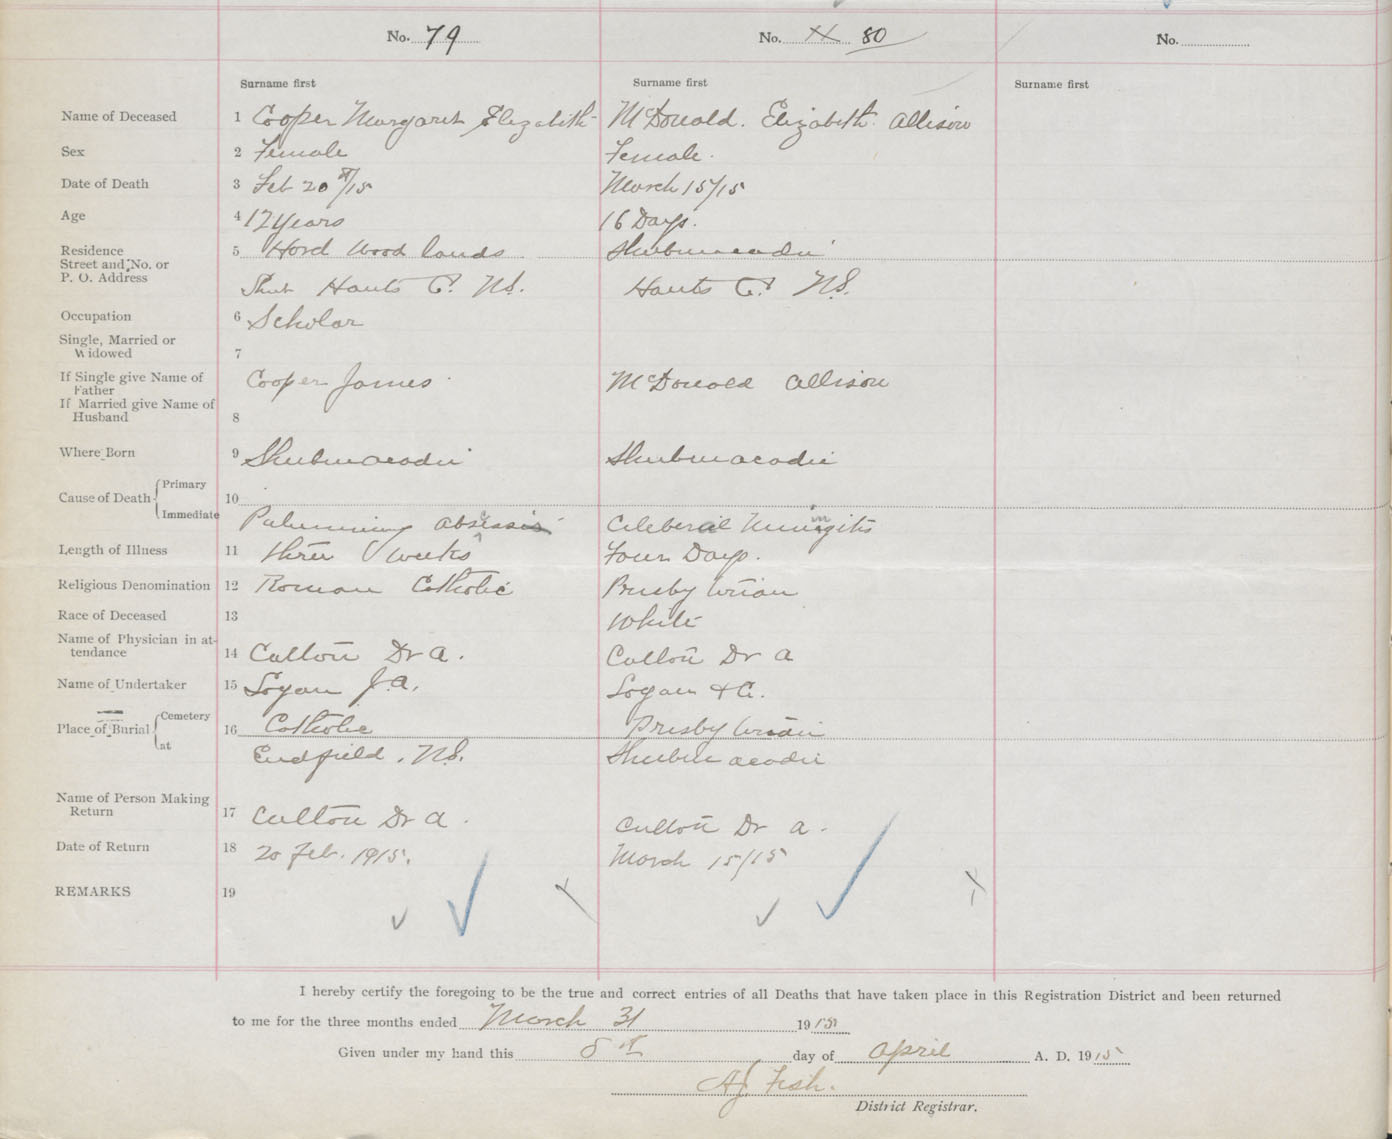 No. 79 No. XX 80 No.
Surname first Surname first Surname first
Name of Deceased 1 Cooper Margaret Elizabeth McDonald. Elizabeth Allison
Sex 2 Female Female.
Date of Death 3 Feb 20th/15 March 15/15
Age 4 17 years 16 Days.
Residence 5 Hard Wood lands Shubenacadie
Street and No. or
P. O. Address Shub Hants Co. N.S. Hants Co. N.S.
Occupation 6 Scholar
Single, Married or
Widowed 7
If Single give Name of Cooper James McDonald Allison
Father
If Married give Name of
Husband 8
Where Born 9 Shubenacadie Shubenacadie
Cause of Death Primary 10
Immediate
Length of Illness 11 three weeks Four Days.
Religious Denomination 12 Roman Catholic Presbyterian
Race of Deceased 13 White
Name of Physician in at-
tendance 14 Cullton Dr A. Cullton Dr A
Name of Undertaker 15 Logan J.A. Logan & Co.
Place of Burial Cemetery 16 Catholic Presbyterian
at Endfield, N.S. Shubenacadie
Name of Person Making
Return 17 Cullton Dr A. Cullton Dr A.
Date of Return 18 20 Feb. 1915. March 15/15
REMARKS 19
I hereby certify the foregoing to be the true and correct entries of all Deaths that have taken place in this Registration District and been returned
to me for the three months ended March 31 1915
Given under my hand this 8th day of April A. D. 1915
A.J. Fish.
District Registrar.